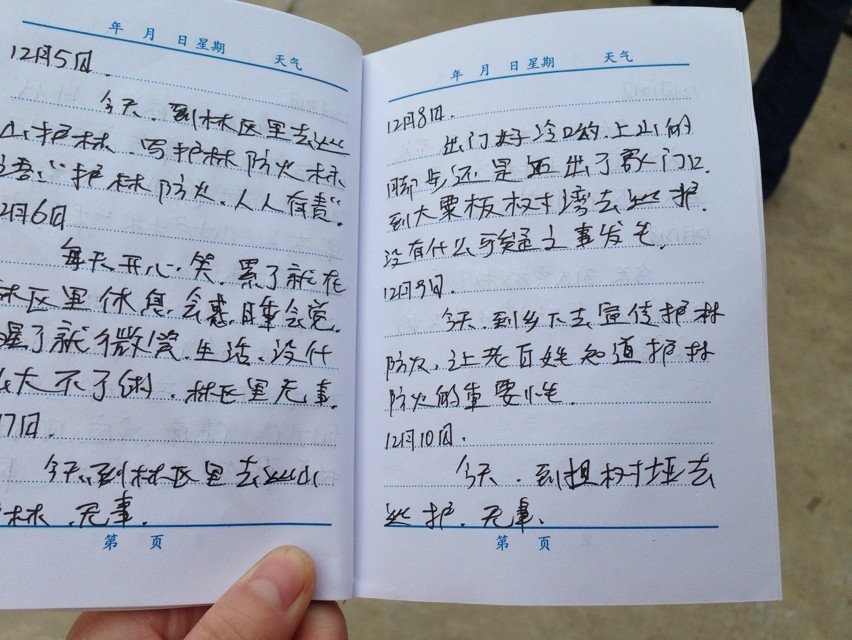 年 月 日 星期 天气
12月5日.
今天.到林区里去巡
山护林.写护林防火标
语:"护林防火.人人有责"
2月6日
每天开心.笑.累了就在
林区里休息会意.睡会觉.
醒了就微笑.生活.没什
么大不了的.林区里无事.
17日.
今天.到林区里去巡山
护林.无事.
第 页
年 月 日 星期 天气
12月8日.
出门好冷哟.上山的
脚步还是迈出了家门口.
到大栗板树湾去巡护.
没有什么可疑之事发生.
12月9日.
今天.到乡下去宣传护林
防火.让老百姓知道护林
防火的重要性.
12月10日.
今天.到担树垭去
巡护.无事.
第 页